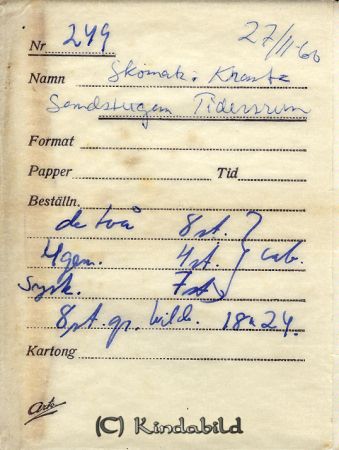 27/11-66
Nr 249
Namn Skomak. Krantz
Sandstugan Tidersrum
Format
Papper Tid
Beställn.
de två 8 st.
4 gen. 4 st. cab.
Sysk. 7 st
8 st. gr. bild. 18x24.
Kartong
(C) Kindabild